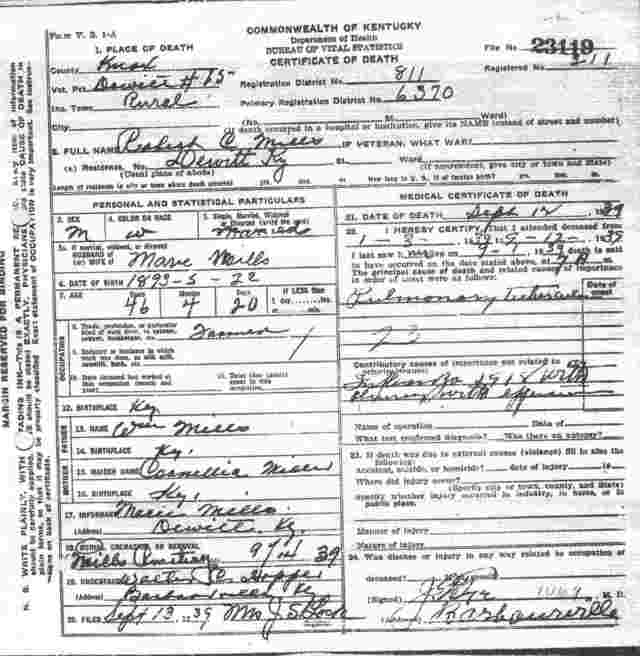 Form V. S. 1-A
COMMONWEALTH OF KENTUCKY
Department of Health
BUREAU OF VITAL STATISTICS
CERTIFICATE OF DEATH
File No. 23119
Registered No. 211
1. PLACE OF DEATH
County Knox
Vot. Pct. Dewitt # 15
Inc. Town Rural
City
Registration District No. 811
Primary Registration District No. 6370
(No. St. Ward)
(If death occurred in a hospital or institution, give its NAME instead of street and number)
2. FULL NAME C. Mills IF VETERAN, WHAT WAR?
(a) Residence. No. Dewitt Ky St. Ward
(Usual place of abode) (If nonresident, give city or town and State)
Length of residence in city or town where death occurred yrs. mos. ds. How long in U. S., if of foreign birth? yrs. mos. ds.
PERSONAL AND STATISTICAL PARTICULARS
3. SEX M
4. COLOR OR RACE W
5. Single, Married, Widowed or Divorced (write the word) Married
5a. If married, widowed, or divorced
HUSBAND of
(or) WIFE of Marie Mills
6. DATE OF BIRTH 1893-5-22
7. AGE Years 46 Months 4 Days 20 If LESS than 1 day hrs. or min.
OCCUPATION
8. Trade, profession, or particular kind of work done, as spinner, sawyer, bookkeeper, etc. Farmer
9. Industry or business in which work was done, as silk mill, sawmill, bank, etc.
10. Date deceased last worked at this occupation (month and year)
11. Total time (years) spent in this occupation
12. BIRTHPLACE Ky
FATHER
13. NAME Wm Mills
14. BIRTHPLACE Ky.
MOTHER
15. MAIDEN NAME Cornellia
16. BIRTHPLACE Ky.
17. INFORMANT Marie Mills
(Address) Dewitt Ky.
18. BURIAL, CREMATION, OR REMOVAL
Mills 9/14 39
19. UNDERTAKER Hopper
(Address) Barbourville, Ky
20. FILED Sept 13, 39 Mrs J. S. Lock
MEDICAL CERTIFICATE OF DEATH
21. DATE OF DEATH Sept. 12, 1939
22. I HEREBY CERTIFY, That I attended deceased from
1-3-1939, 9-12-1939
I last saw h alive on 1939 death is said
to have occurred on the date stated above, at
The principal cause of death and related causes of importance in order of onset were as follows:
Date of onset
Pulmonary tuberculosis
23
Contributory causes of importance not related to principal cause:
1918 with
pleurisy with effusion
Name of operation Date of
What test confirmed diagnosis? Was there an autopsy?
23. If death was due to external causes (violence) fill in also the following:
Accident, suicide, or homicide? date of injury 19
Where did injury occur?
(Specify city or town, county, and State)
Specify whether injury occurred in industry, in home, or in public place.
Manner of injury
Nature of injury
24. Was disease or injury in any way related to occupation of deceased?
(Signed) M. D.
(Address) Barbourville
MARGIN RESERVED FOR BINDING